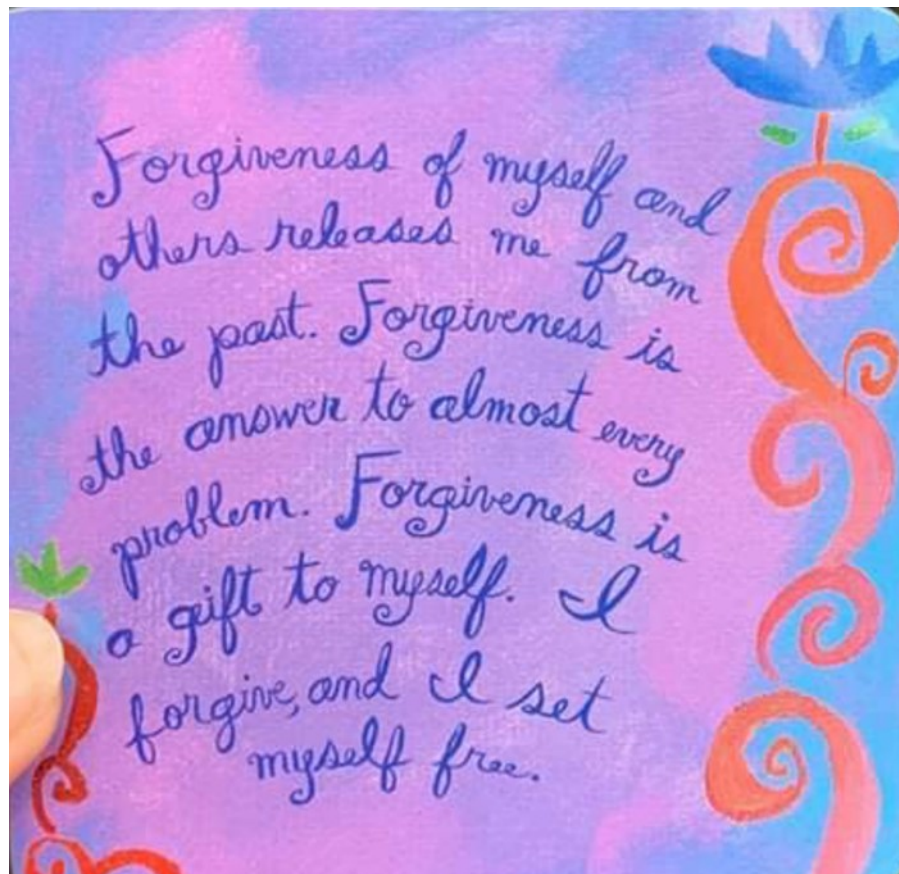 Forgiveness of myself and
others releases me from
the past. Forgiveness is
the answer to almost every
problem. Forgiveness is
a gift to myself. I
forgive, and I set
myself free.